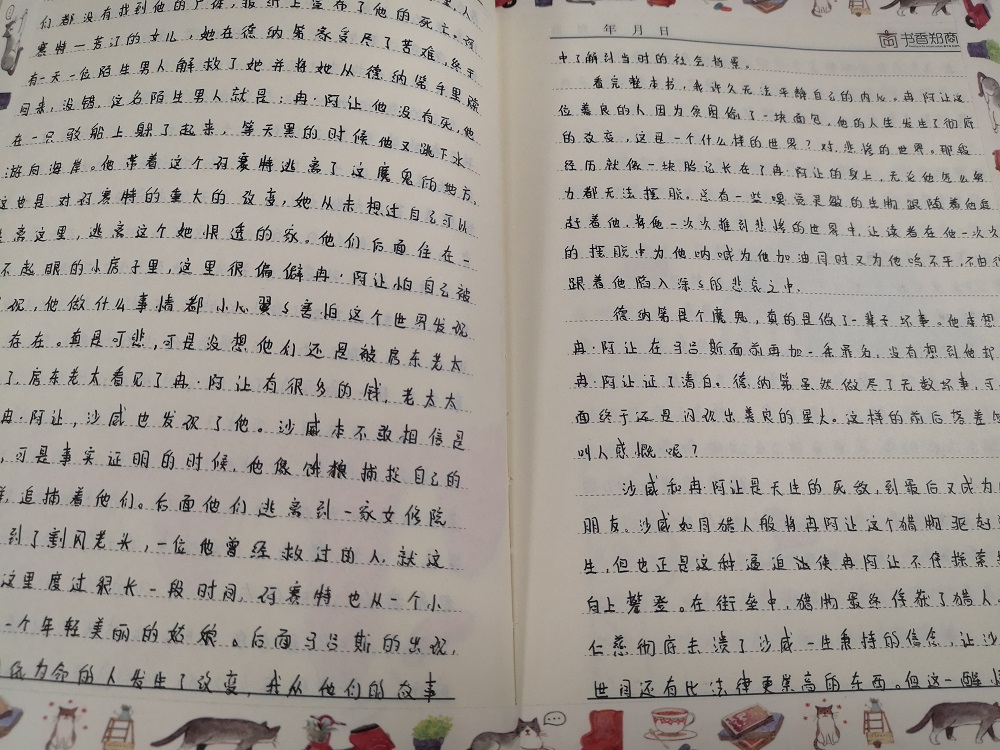 们都没有找到他的尸体,报纸上宣布了他的死亡。珂
赛特一芳汀的女儿,她在德纳第家受尽了苦难,终于
有一天一位陌生男人解救了她并将她从德纳第手里赎
回来,没错,这名陌生男人就是:冉·阿让他没有死,他
在一只救船上躲了起来,等天黑的时候他又跳下水
游向海岸。他带着这个珂赛特逃离了这魔鬼的地方。
这也是对珂赛特的重大的改变,她从未想过自己可以
离这里,逃离这个她恨透的家。他们后面住在一
不起眼的小房子里,这里很偏僻冉·阿让怕自己被
现,他做什么事情都小心翼々害怕这个世界发现
存在。真是可悲,可是没想他们还是被房东老太
了,房东老太看见了冉·阿让有很多的钱,老太太
冉·阿让,沙威也发现了他。沙威本不敢相信是
,可是事实证明的时候,他像饿狼捕捉自己的
,追捕着他们。后面他们逃离到一家女修院
到了割风老头,一位他曾经救过的人,就这
这里度过很长一段时间,珂赛特也从一个小
一个年轻美丽的姑娘。后面马吕斯的出现,
为命的人发生了改变,我从他们的故事
年 月 日
书香知商
中了解到当时的社会背景。
看完整本书,我许久无法平静自己的内心。冉阿让这
位善良的人因为贫困偷了一块面包,他的人生发生了彻底
的改变,这是一个什么样的世界?对,悲惨的世界。那段
经历就像一块胎记长在了冉阿让的身上,无论他怎么努
力都无法摆脱。总有一些嗅觉灵敏的生物跟随着他
赶着他,将他一次次推到悲惨的世界中,让读者在他一次次
的摆脱中为他呐喊为他加油同时又为他鸣不平,不由得
跟着他陷入深々的悲哀之中.
德纳第是个魔鬼,真的是做了一辈子坏事。他本想
冉·阿让在马吕斯面前再加一条罪名,没有想到他却
冉·阿让证了清白。德纳第虽然做尽了无数坏事,可
面终于还是闪现出善良的星火。这样的前后落差
叫人感慨呢?
沙威和冉·阿让是天生的死敌,到最后又成为
朋友。沙威如同猎人般将冉阿让这个猎物驱赶
生,但也正是这种逼迫迫使冉阿让不停探索
向上攀登。在街垒中,猎物最终俘获了猎人,
仁慈彻底击溃了沙威一生秉持的信念,让沙
世间还有比法律更崇高的东西。但这一醒